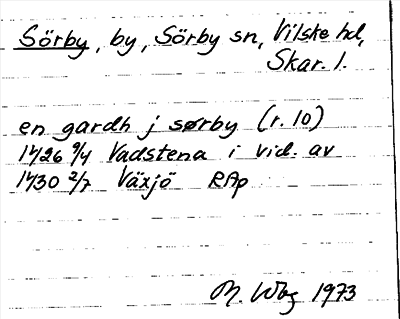 Sörby, by, Sörby sn, Vilske hd,
Skar. l.
en gardh j sørby (r. 10)
1426 9/4 Vadstena i vid. av
1430 2/7 Växjö RAp
M. Wbg 1973